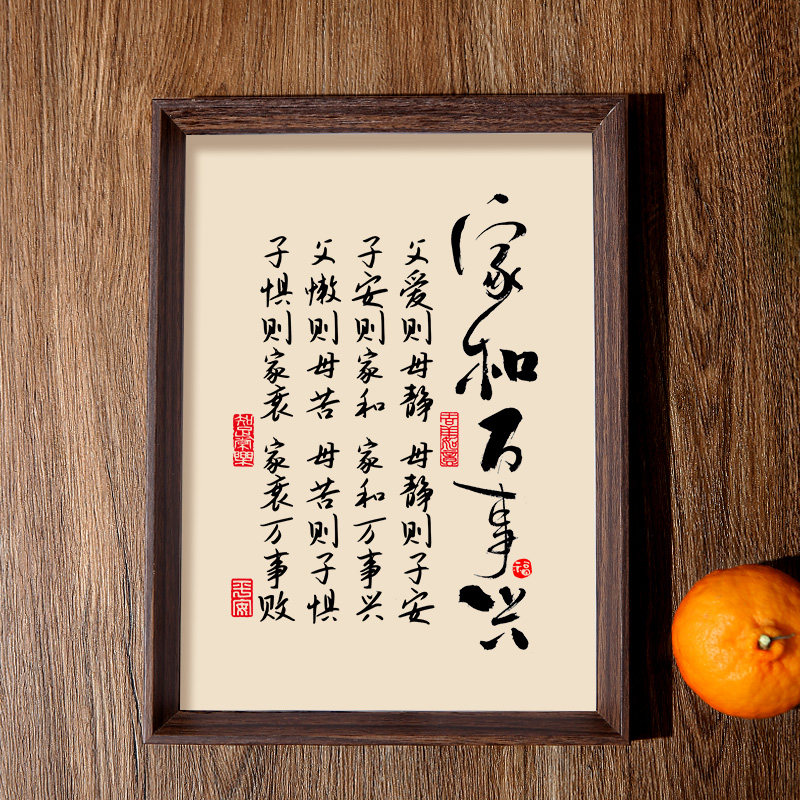 家和万事兴
父爱则母静 母静则子安
子安则家和 家和万事兴
父懒则母苦 母苦则子惧
子惧则家衰 家衰万事败
吉羊如意
福
知足常乐
平安